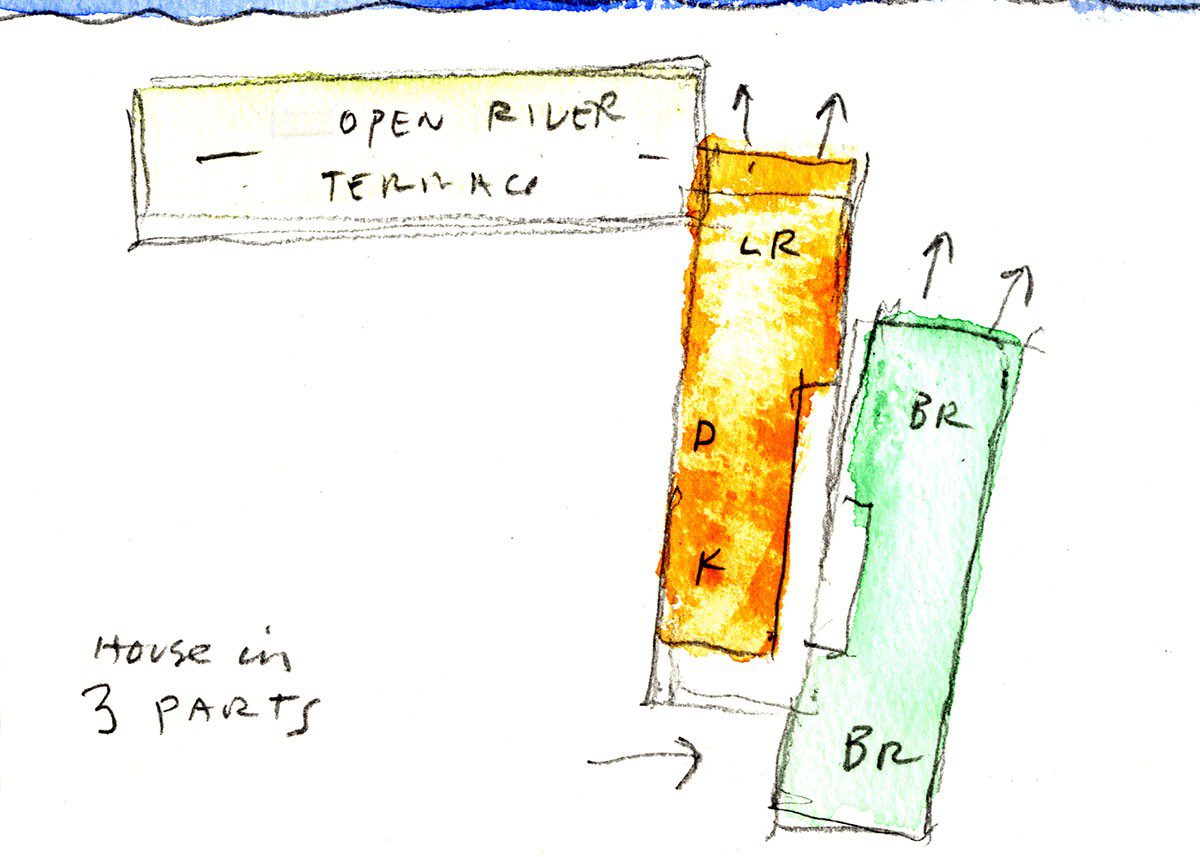 OPEN RIVER
TERRACE
LR
BR
D
K
House in
3 PARTS
BR